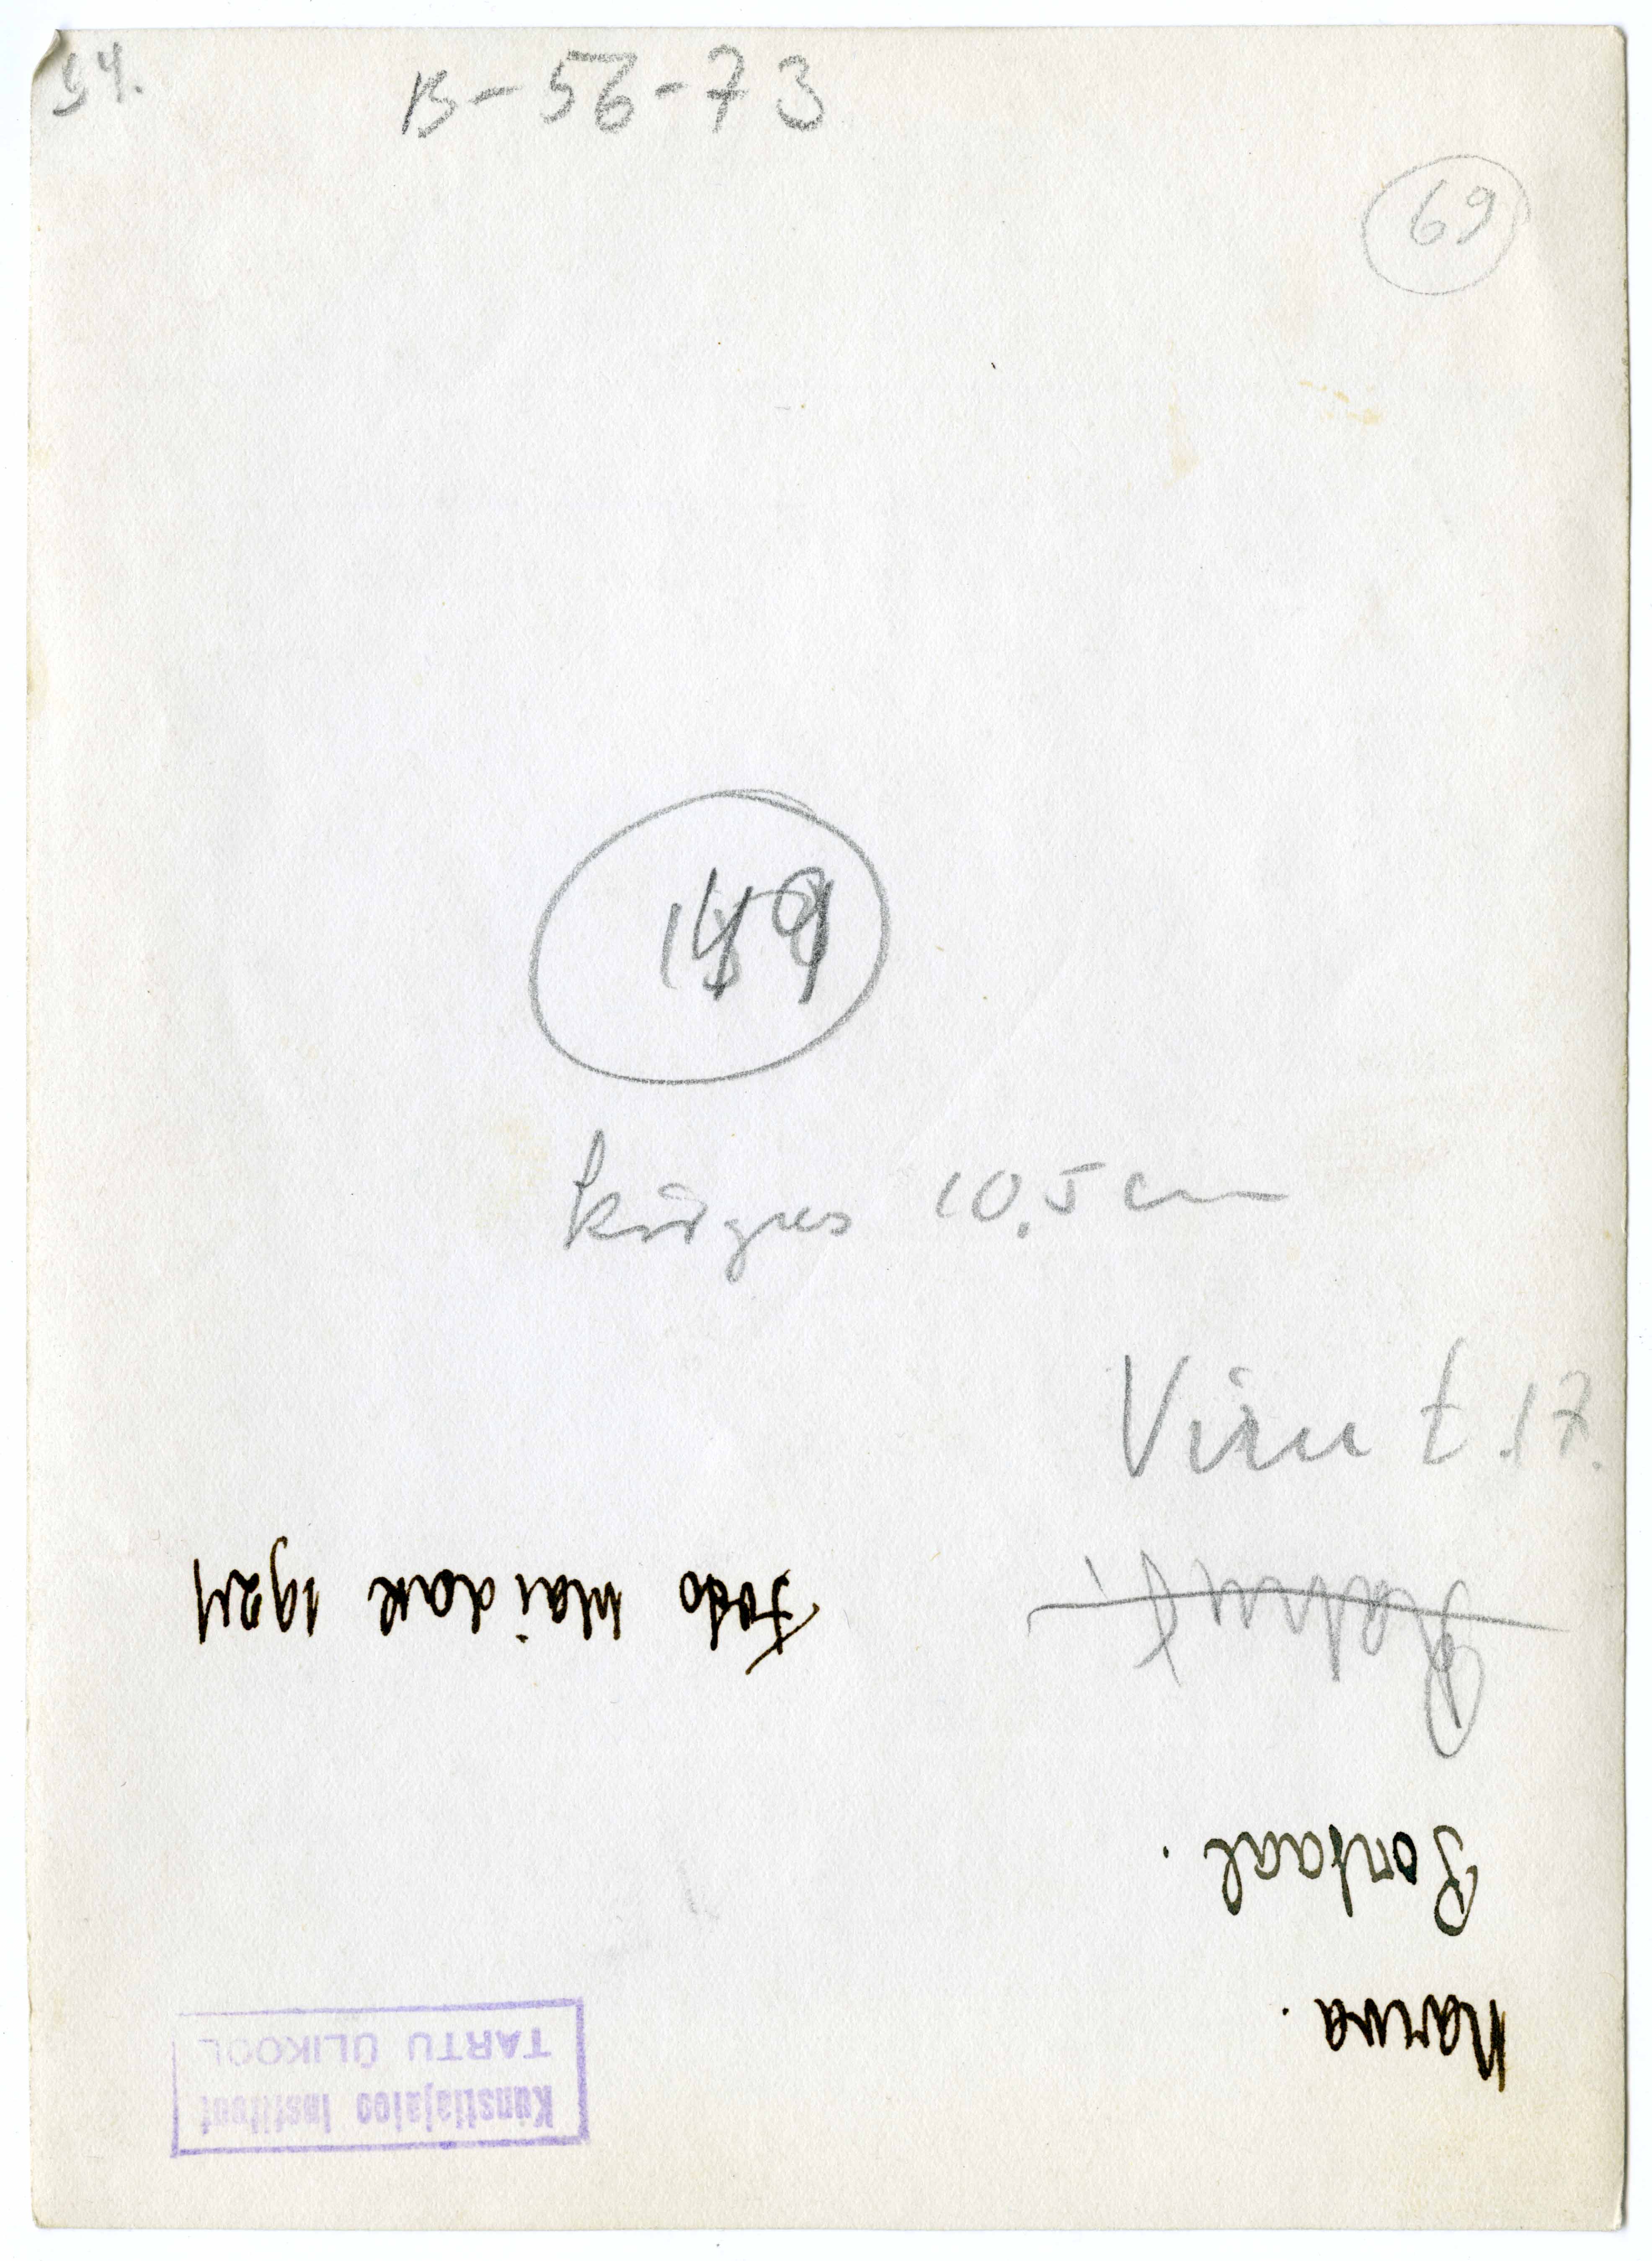 54.
B-56-73
69
kõrgus 10,5 cm
Viru t. 17.
Narva.
Portaal.
Foto Maidak 1924
Kunstiajaloo Instituut
TARTU ÜLIKOOL